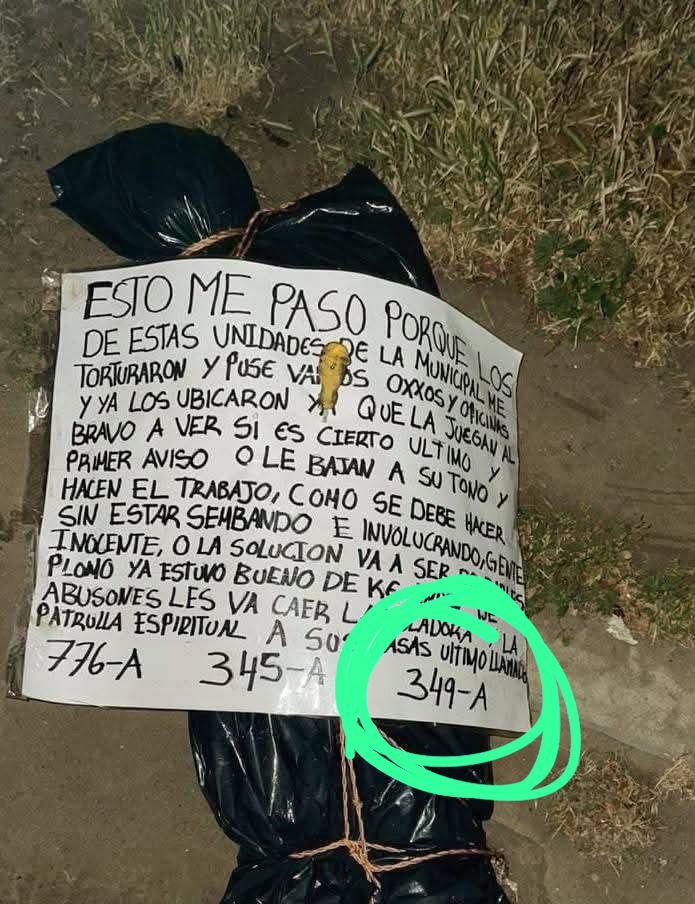 ESTO ME PASO PORQUE LOS
DE ESTAS UNIDADES DE LA MUNICIPAL ME
TORTURARON Y PUSE VARIOS OXXOS Y OFICINAS
Y YA LOS UBICARON QUE LA JUEGAN AL
BRAVO A VER SI ES CIERTO ULTIMO Y
PRIMER AVISO O LE BAJAN A SU TONO Y
HACEN EL TRABAJO, COMO SE DEBE HACER
SIN ESTAR SEMBANDO E INVOLUCRANDO, GENTE
INOCENTE, O LA SOLUCION VA A SER
PLOMO YA ESTUVO BUENO DE
ABUSONES LES VA CAER LA
PATRULLA ESPIRITUAL A SUS CASAS ULTIMO LLAMADO
776-A 345-A 349-A